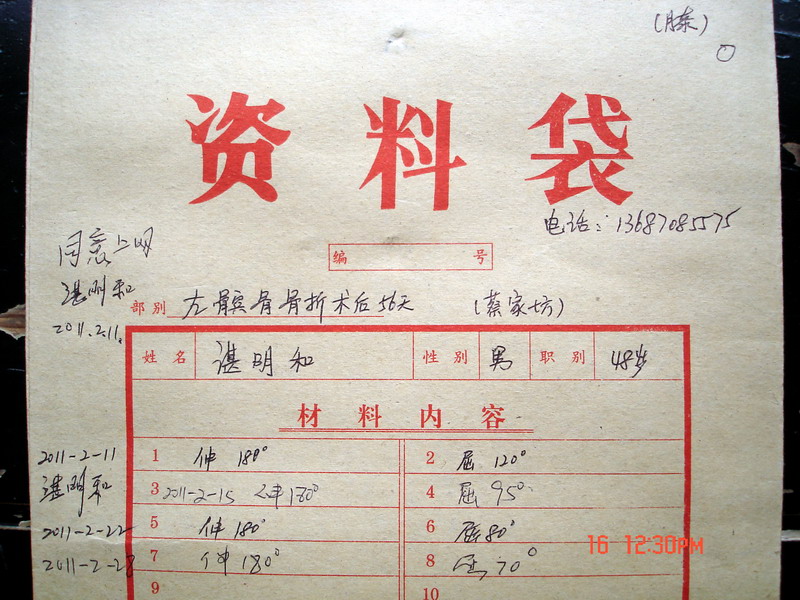 (膝)
资料袋
电话：13687085575
同意上网
编 号
谌明和
部别 左髌骨骨折术后56天 (蔡家坊)
2011.2.11.
姓名 谌明和 性别 男 职别 48岁
材料内容
2011-2-11 1 伸180° 2 屈120°
谌明和 3 2011-2-15 伸180° 4 屈95°
2011-2-22 5 伸180° 6 屈80°
2011-2-28 7 伸180° 8 屈70°
9 10
16 12:30PM